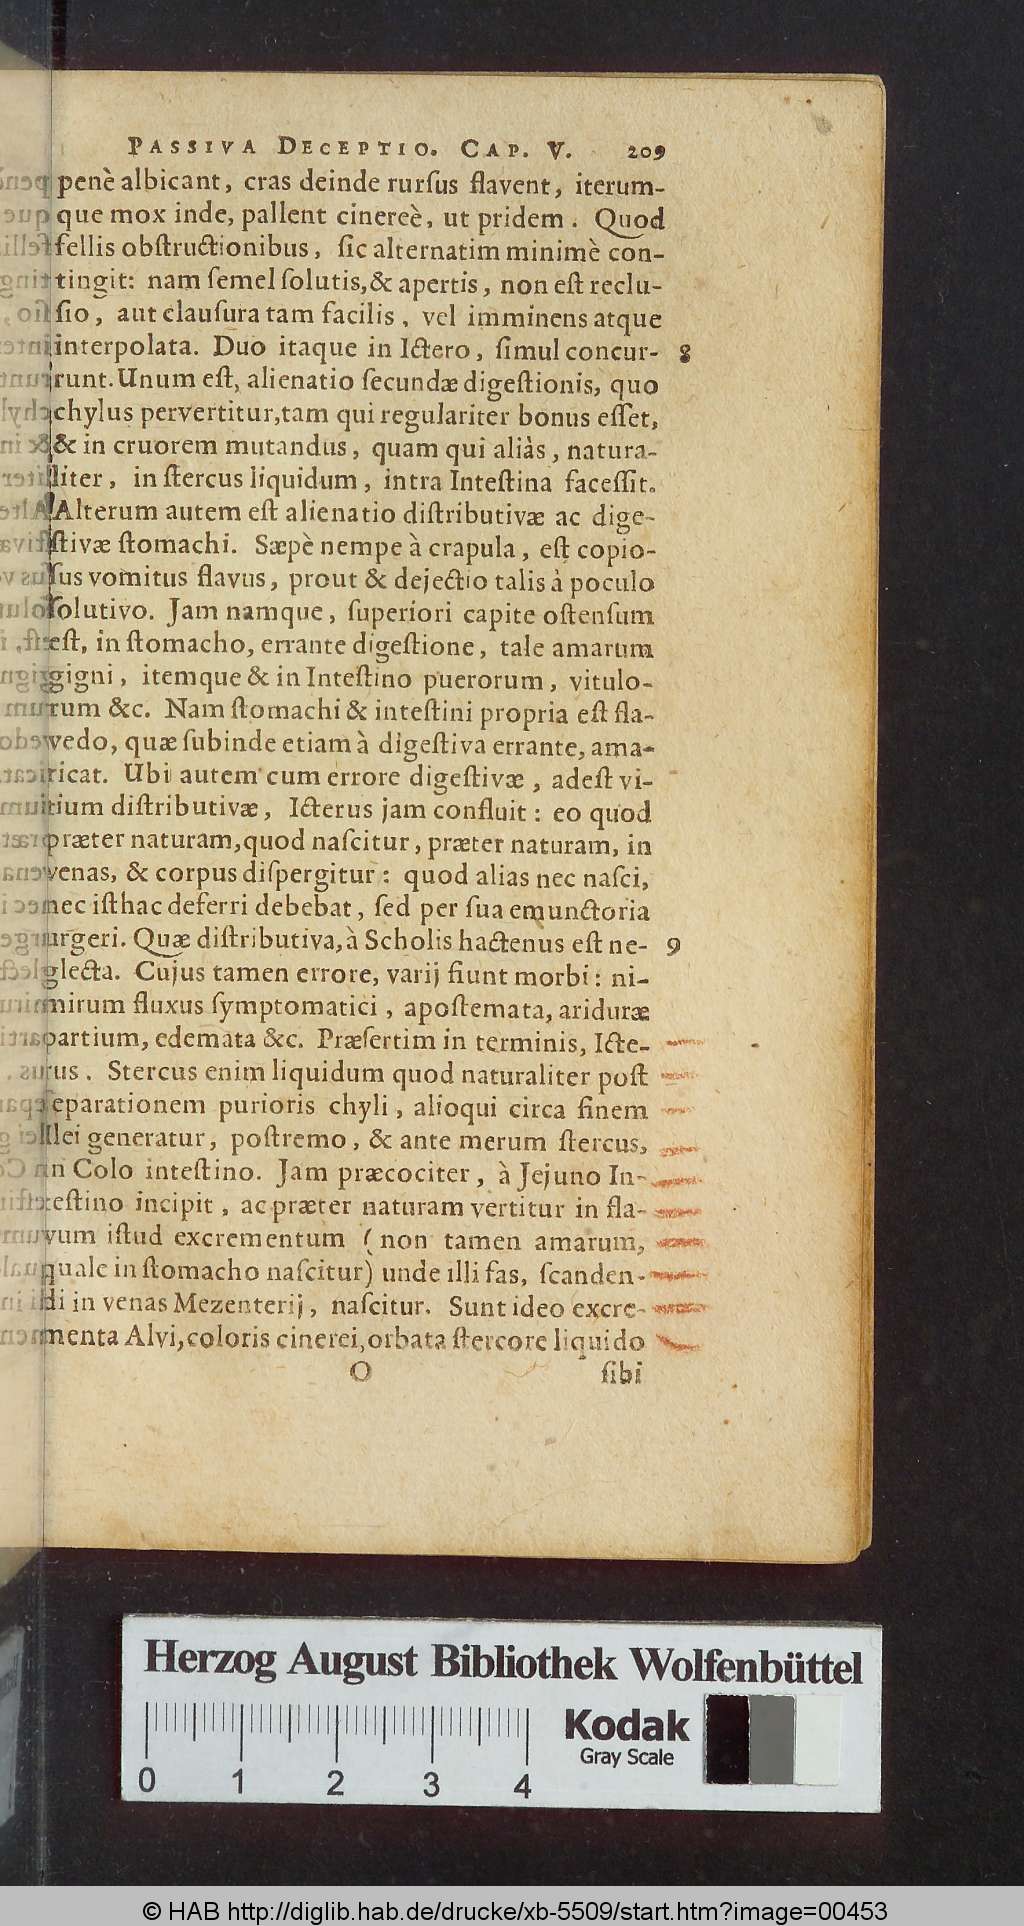 PASSIVA DECEPTIO. CAP. V. 209
penè albicant, cras deinde rurſus flavent, iterum-
que mox inde, pallent cinereè, ut pridem. Quod
fellis obſtructionibus, ſic alternatim minimè con-
tingit: nam ſemel ſolutis, & apertis, non eſt reclu-
ſio, aut clauſura tam facilis, vel imminens atque
interpolata. Duo itaque in Ictero, ſimul concur- 8
runt. Unum eſt, alienatio ſecundæ digeſtionis, quo
chylus pervertitur, tam qui regulariter bonus eſſet,
& in cruorem mutandus, quam qui aliàs, natura-
liter, in ſtercus liquidum, intra Inteſtina faceſſit.
Alterum autem eſt alienatio diſtributivæ ac dige-
ſtivæ ſtomachi. Sæpè nempe à crapula, eſt copio-
ſus vomitus flavus, prout & dejectio talis à poculo
ſolutivo. Jam namque, ſuperiori capite oſtenſum
eſt, in ſtomacho, errante digeſtione, tale amarum
gigni, itemque & in Inteſtino puerorum, vitulo-
rum &c. Nam ſtomachi & inteſtini propria eſt fla-
vedo, quæ ſubinde etiam à digeſtiva errante, ama-
ricat. Ubi autem cum errore digeſtivæ, adeſt vi-
tium diſtributivæ, Icterus jam confluit: eo quod
præter naturam, quod naſcitur, præter naturam, in
venas, & corpus diſpergitur: quod alias nec naſci,
nec iſthac deferri debebat, ſed per ſua emunctoria
urgeri. Quæ diſtributiva, à Scholis hactenus eſt ne- 9
glecta. Cujus tamen errore, varij fiunt morbi: ni-
mirum fluxus ſymptomatici, apoſtemata, ariduræ
partium, edemata &c. Præſertim in terminis, Icte-
rus. Stercus enim liquidum quod naturaliter poſt
ſeparationem purioris chyli, alioqui circa finem
Ilei generatur, poſtremo, & ante merum ſtercus,
in Colo inteſtino. Jam præcociter, à Jejuno In-
teſtino incipit, ac præter naturam vertitur in fla-
vum iſtud excrementum (non tamen amarum,
quale in ſtomacho naſcitur) unde illi fas, ſcanden-
di in venas Mezenterij, naſcitur. Sunt ideo excre-
menta Alvi, coloris cinerei, orbata ſtercore liquido
O ſibi
Herzog August Bibliothek Wolfenbüttel
Kodak
Gray Scale
0 1 2 3 4
© HAB http://diglib.hab.de/drucke/xb-5509/start.htm?image=00453